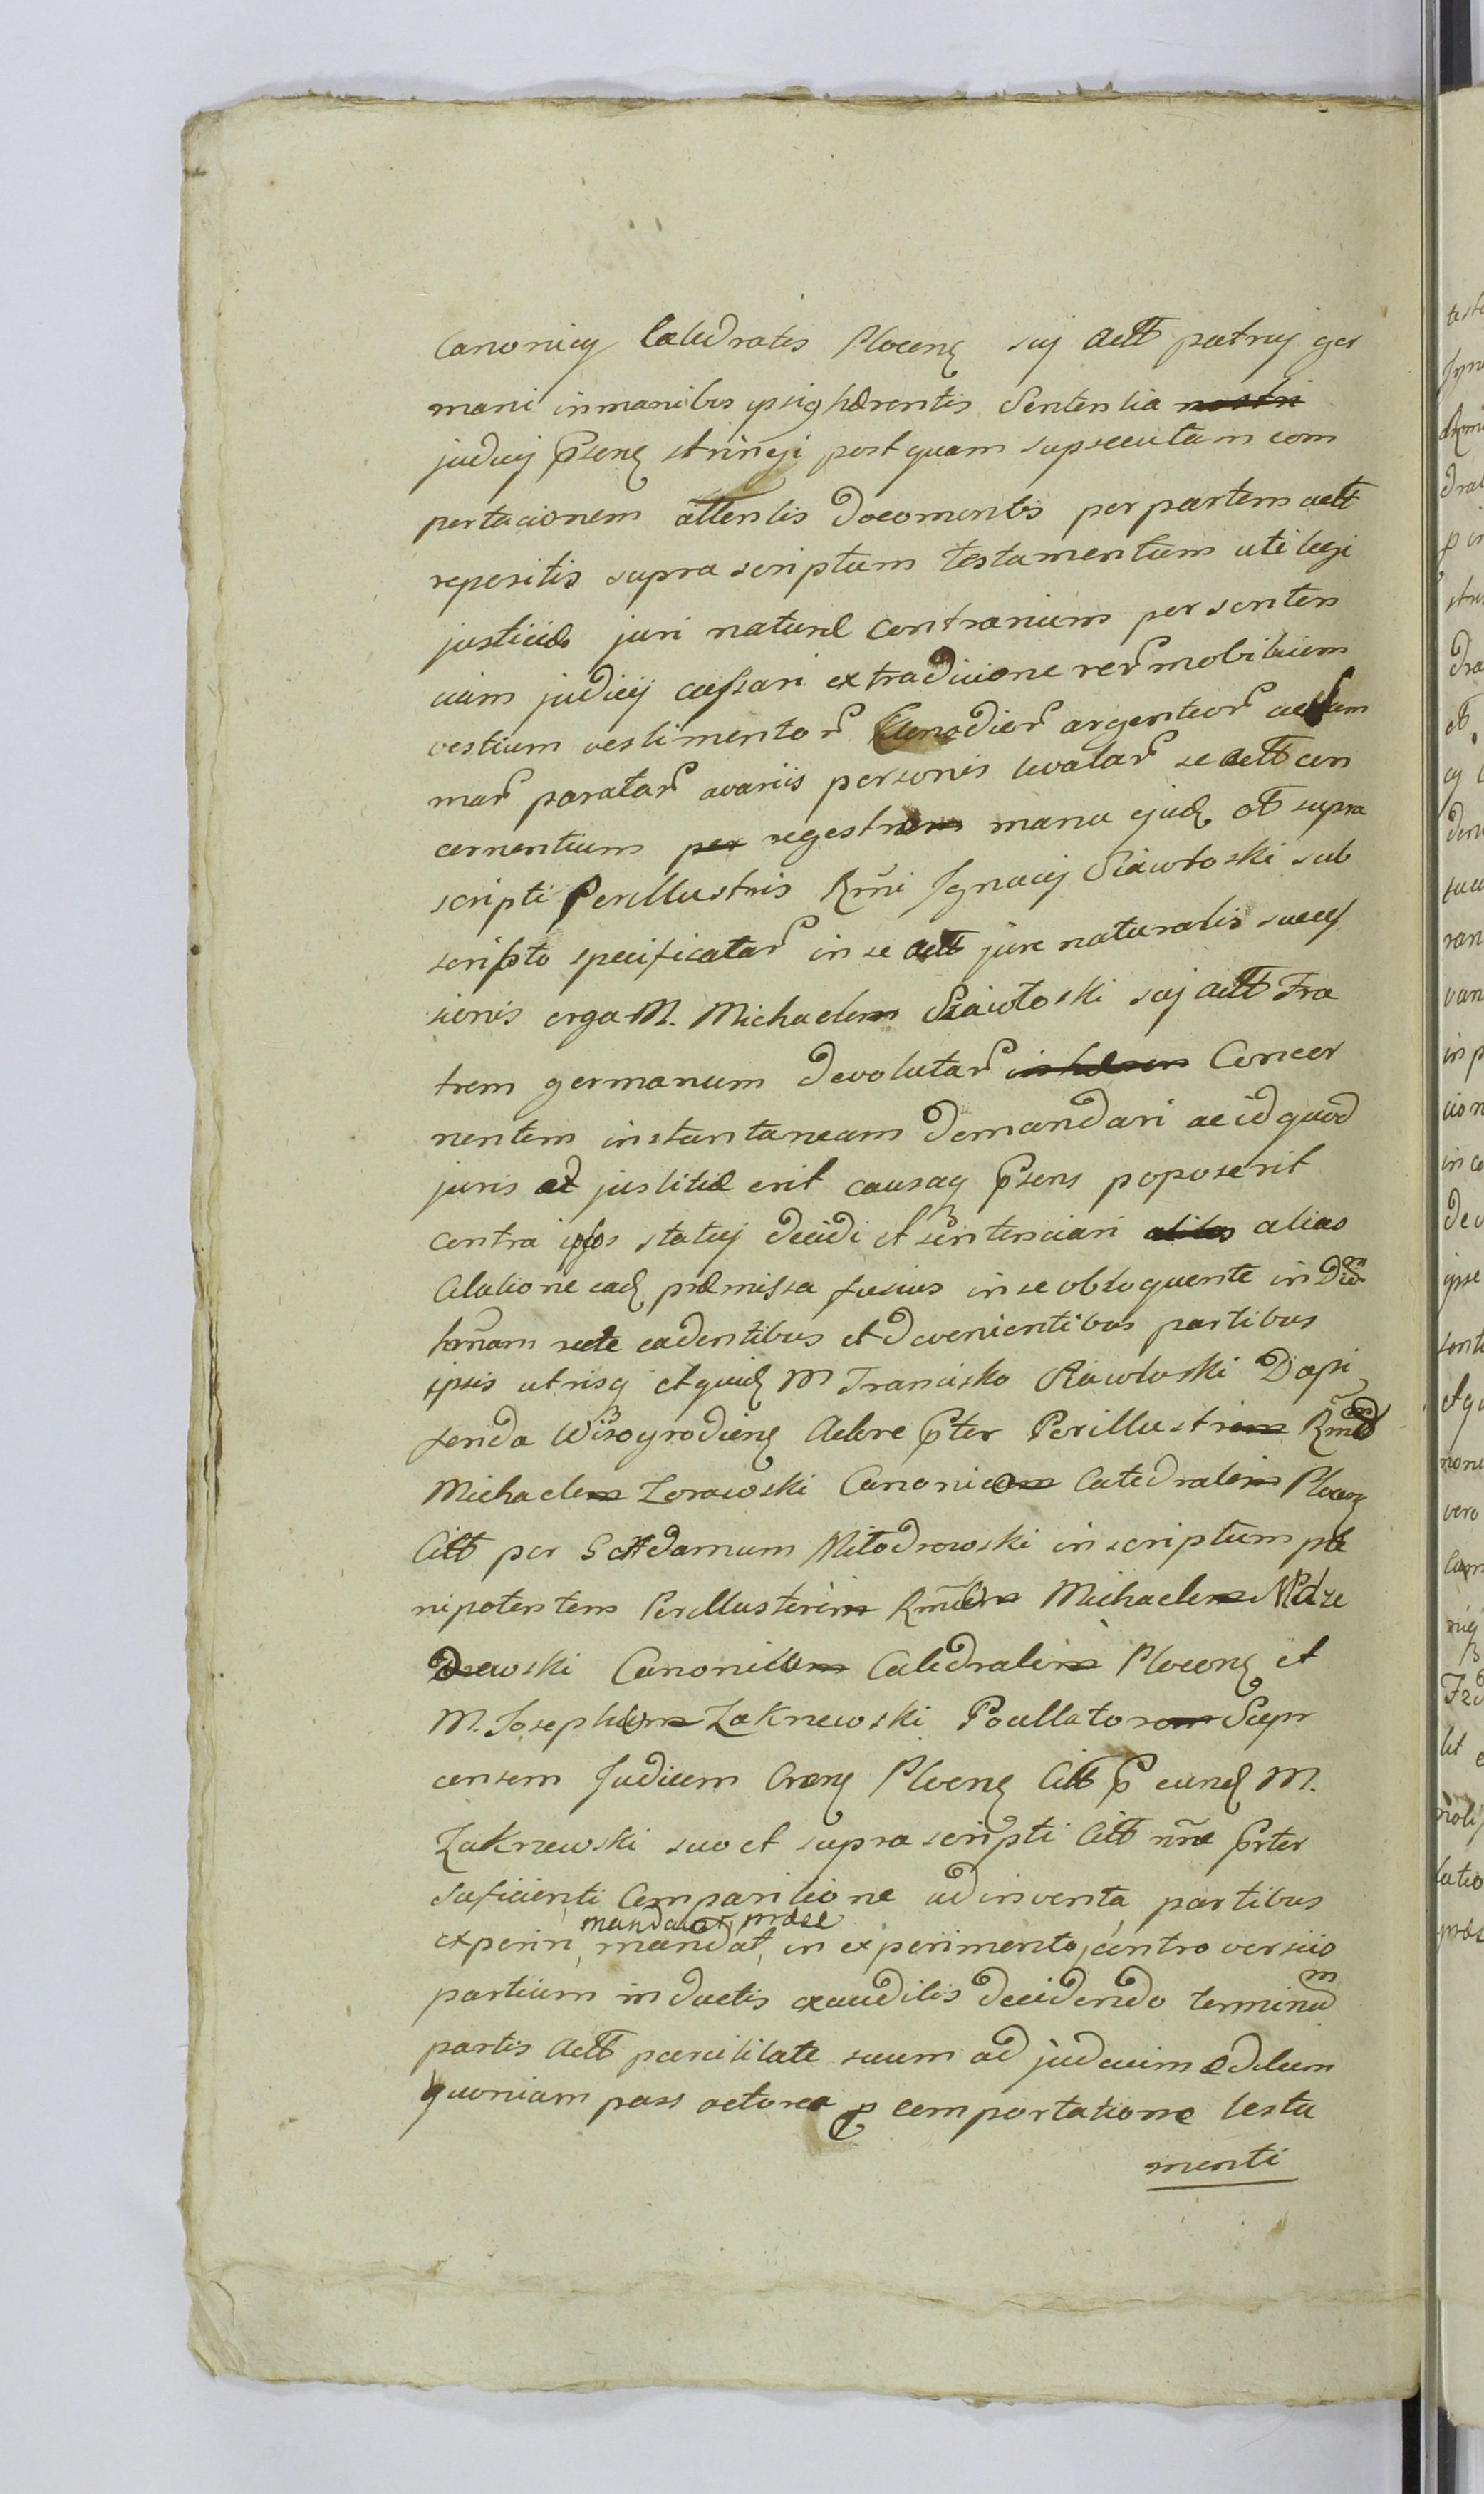 Canonicy Catedratis Plocenʒ sui actt patruj ger
mani in manibus ipsig hærentis Sententia nostri
judicij Psenʒ stringi post quam supsecutam com
portacionem attentis Documentis per partem actt
repositis supra scriptum Testamentum uti legi
justiciæ juri naturæ contrarium per senten
ciam judicij cassari extradicione rerͫ mobilium
vestium vestimentorͫ argenteorͫ
marͫ paratarͫ avariis personis levatarͫ se actt con
cernentium per regestrum manu ejuđ ott supra
scripti Perillustris Rm̃i Ignacij Siawłoski sub
scripto specificatarͫ in se actt jure naturalis succes
sionis erga M. Michaelem Siawłoski suj actt Fra
trem germanum devolutarͫ Concer
nentem instantaneam Demandari ac id quod
juris et justitiæ erit causaq Psens poposcerit
contra ipsos statuj decidi et sentenciari alias alias
Citatione eađ præmissa fusius in se obloquente in
hrnam recte cadentibus et devenientibus partibus
ipsis utrisq et quiđ M Francisko Dapi
ferida Wisogrodienʒ Actore Pter Perillustrem Rmđ
Michaelem Zorawski Canonicum Catedralem Plocenʒ
Citt per G Adamum Miłodrowski inscriptum ple
nipotentem Perillustrem Rmđm Michaelem
Canonicum Catedralem Plocenʒ et
M. Josephum Zakrzewski Pocillatorem Supr
censem Judicem Plocenʒ Citt P eunđ M.
Zakrzewski suo et supra scripti Citt nñe Prter
suficienti Comparitione adinventa partibus
mandavit, præse
experiri, mandat, in experimento, controversiis
partium inductis exaudilis decidendo terminum
partis actt parcilitate suum ad judicium
quoniam pars actorea p comportatione testa
menti